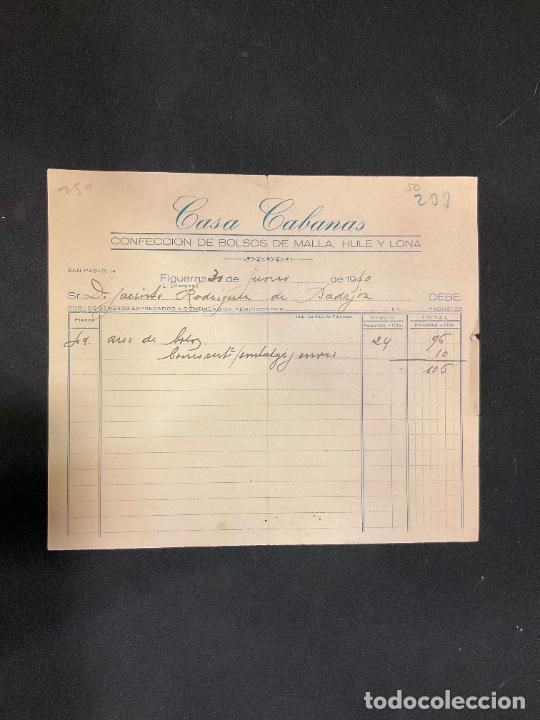 254
50
299
Casa Cabanas
CONFECCION DE BOLSOS DE MALLA, HULE Y LONA
SAN PABLO, 14
Figueras 30 de junio de 1940
(Gerona)
Sr. D. Jacinto Rodriguez de Badajoz DEBE:
POR LOS GENEROS EXPRESADOS A CONTINUACION, REMITIDOS POR EN PAQUETES
Piezas PRECIO TOTAL
Pesetas - Cts. Pesetas - Cts.
aros de bolso 24 96
embalaje envio 10
106
todocoleccion
todocoleccion.net